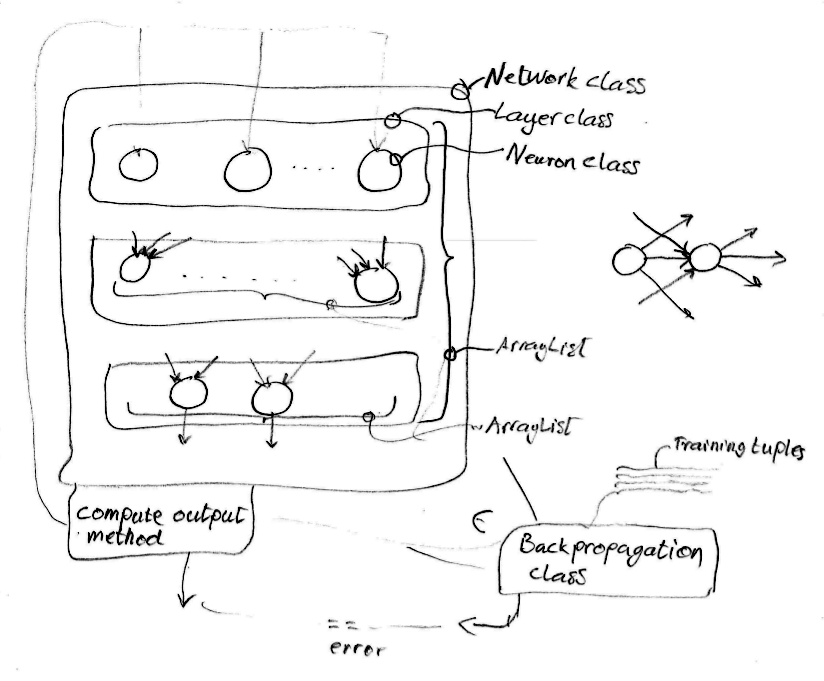 Network class
Layer class
Neuron class
ArrayList
ArrayList
Training tuples
compute output
method
∈
Backpropagation
class
==
error